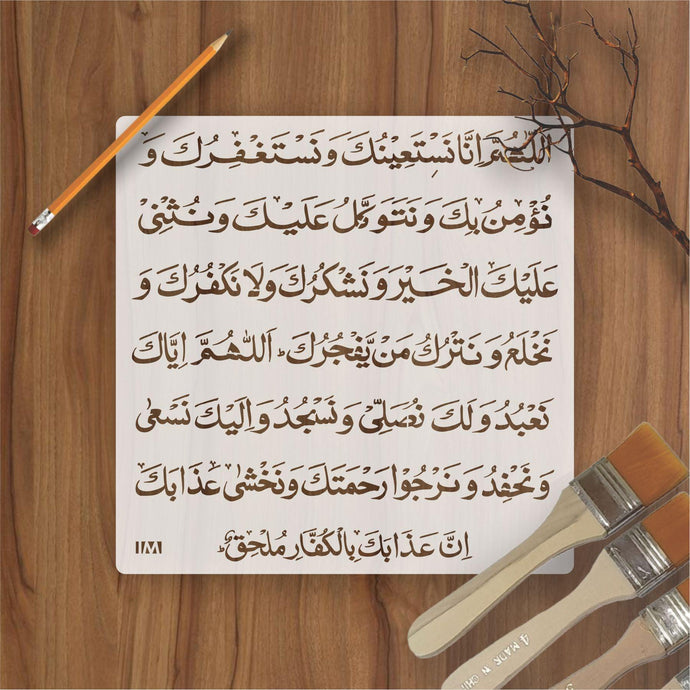 اَللّٰهُمَّ اِنَّا نَسْتَعِيْنُكَ وَنَسْتَغْفِرُكَ وَ
نُؤْمِنُ بِكَ وَنَتَوَكَّلُ عَلَيْكَ وَنُثْنِىْ
عَلَيْكَ الْخَيْرَ وَنَشْكُرُكَ وَلَا نَكْفُرُكَ وَ
نَخْلَعُ وَنَتْرُكُ مَنْ يَّفْجُرُكَ ؕ اَللّٰهُمَّ اِيَّاكَ
نَعْبُدُ وَلَكَ نُصَلِّىْ وَنَسْجُدُ وَاِلَيْكَ نَسْعٰى
وَنَحْفِدُ وَنَرْجُوْا رَحْمَتَكَ وَنَخْشٰى عَذَابَكَ
اِنَّ عَذَابَكَ بِالْكُفَّارِ مُلْحِقٌ ؕ
IM
4 MADE IN CHI